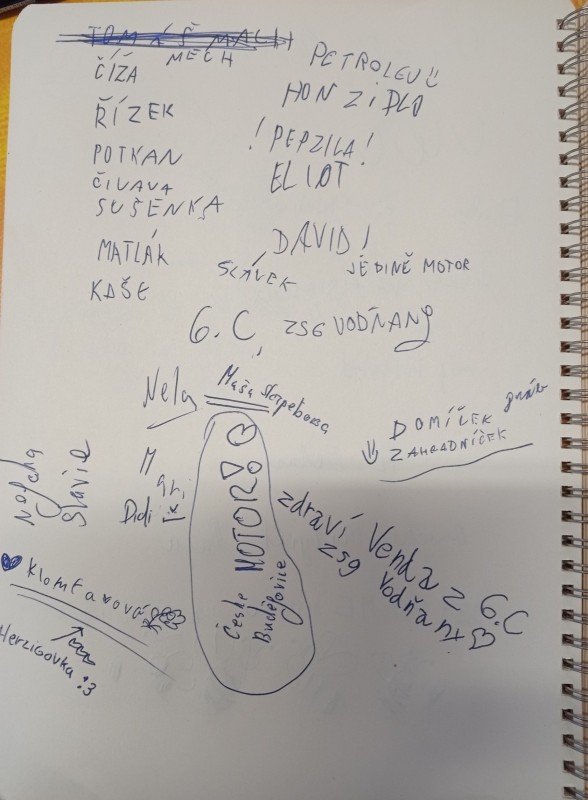 TOMÁŠ MACH
MECH
ČÍŽA
ŘÍZEK
POTKAN
ČIVAVA
SUŠENKA
MATLÁK
KAŠE
PETROLEUU
HONZIDLO
! PEPZILA!
ELIOT
DAVID!
SLÁVEK
JEDINĚ MOTOR
6.C, ZSG VODŇANY
Nela
Máša
DOMÍČEK
ZAHRADNÍČEK
Didi
MOTOR
České
Budějovice
zdraví Venda z 6.C
zsg Vodňany
Herzigovka :3